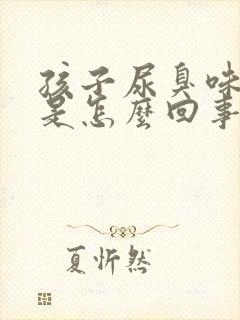 孩子尿臭味
是怎麼回事
夏忻然